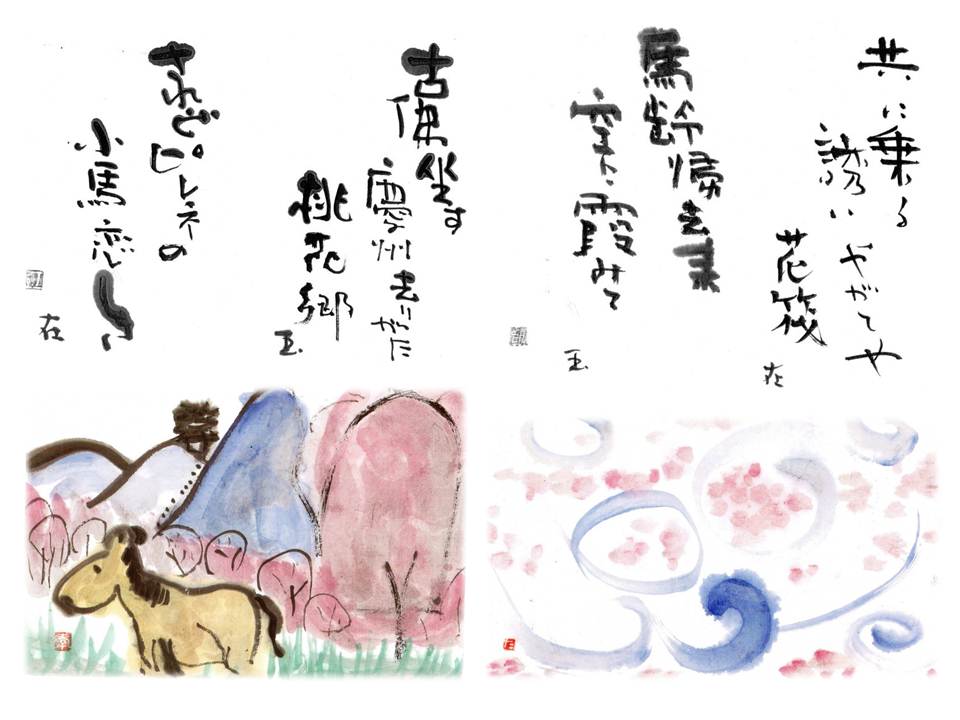 共に乗る
誘い
やがてや
花筏
在
馬齢帰去来
霞みて
玉
坐す
慶州去りがた
桃花郷
玉
されどピレネの
小馬恋し
在